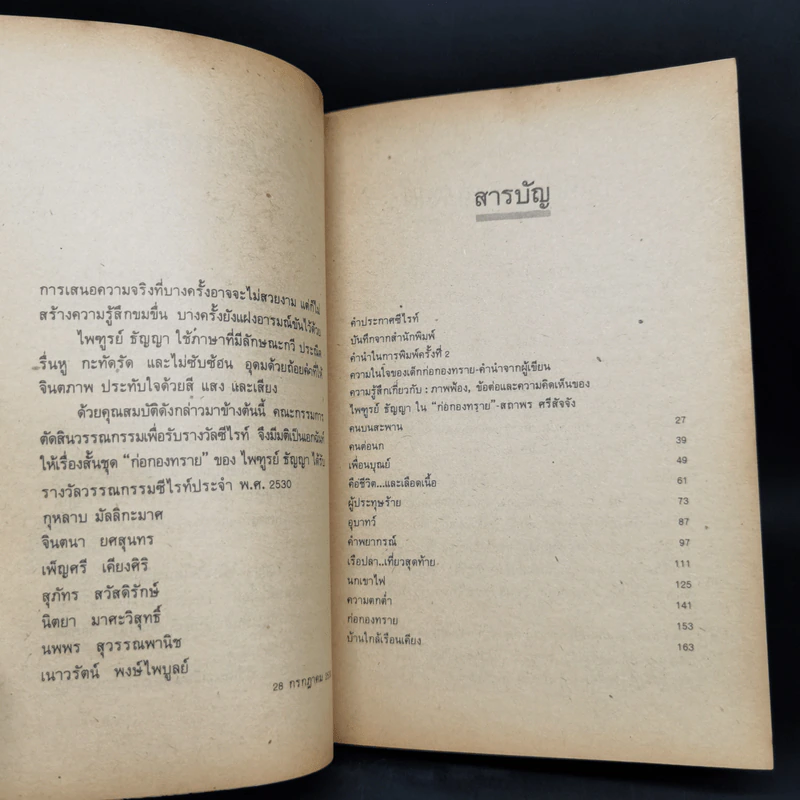 การเสนอความจริงที่บางครั้งอาจจะไม่สวยงาม แต่ก็ไม่
สร้างความรู้สึกขมขื่น บางครั้งยังแฝงอารมณ์ขันไว้ด้วย
ไพฑูรย์ ธัญญา ใช้ภาษาที่มีลักษณะกวี ประณีต
รื่นหู กะทัดรัด และไม่ซับซ้อน อุดมด้วยถ้อยคำที่ให้
จินตภาพ ประทับใจด้วยสี แสง และเสียง
ด้วยคุณสมบัติดังกล่าวมาข้างต้นนี้ คณะกรรมการ
ตัดสินวรรณกรรมเพื่อรับรางวัลซีไรท์ จึงมีมติเป็นเอกฉันท์
ให้เรื่องสั้นชุด “ก่อกองทราย” ของ ไพฑูรย์ ธัญญา ได้รับ
รางวัลวรรณกรรมซีไรท์ประจำ พ.ศ. 2530
กุหลาบ มัลลิกะมาศ
จินตนา ยศสุนทร
เพ็ญศรี เคียงศิริ
สุภัทร สวัสดิรักษ์
นิตยา มาศะวิสุทธิ์
นพพร สุวรรณพานิช
เนาวรัตน์ พงษ์ไพบูลย์
28 กรกฎาคม
สารบัญ
คำประกาศซีไรท์
บันทึกจากสำนักพิมพ์
คำนำในการพิมพ์ครั้งที่ 2
ความในใจของเด็กก่อกองทราย-คำนำจากผู้เขียน
ความรู้สึกเกี่ยวกับ : ภาพฟ้อง, ข้อต่อและความคิดเห็นของ
ไพฑูรย์ ธัญญา ใน “ก่อกองทราย”-สถาพร ศรีสัจจัง
คนบนสะพาน 27
คนต่อนก 39
เพื่อนบุณย์ 49
คือชีวิต...และเลือดเนื้อ 61
ผู้ประทุษร้าย 73
อุบาทว์ 87
คำพยากรณ์ 97
เรือปลา..เที่ยวสุดท้าย 111
นกเขาไฟ 125
ความตกต่ำ 141
ก่อกองทราย 153
บ้านใกล้เรือนเคียง 163